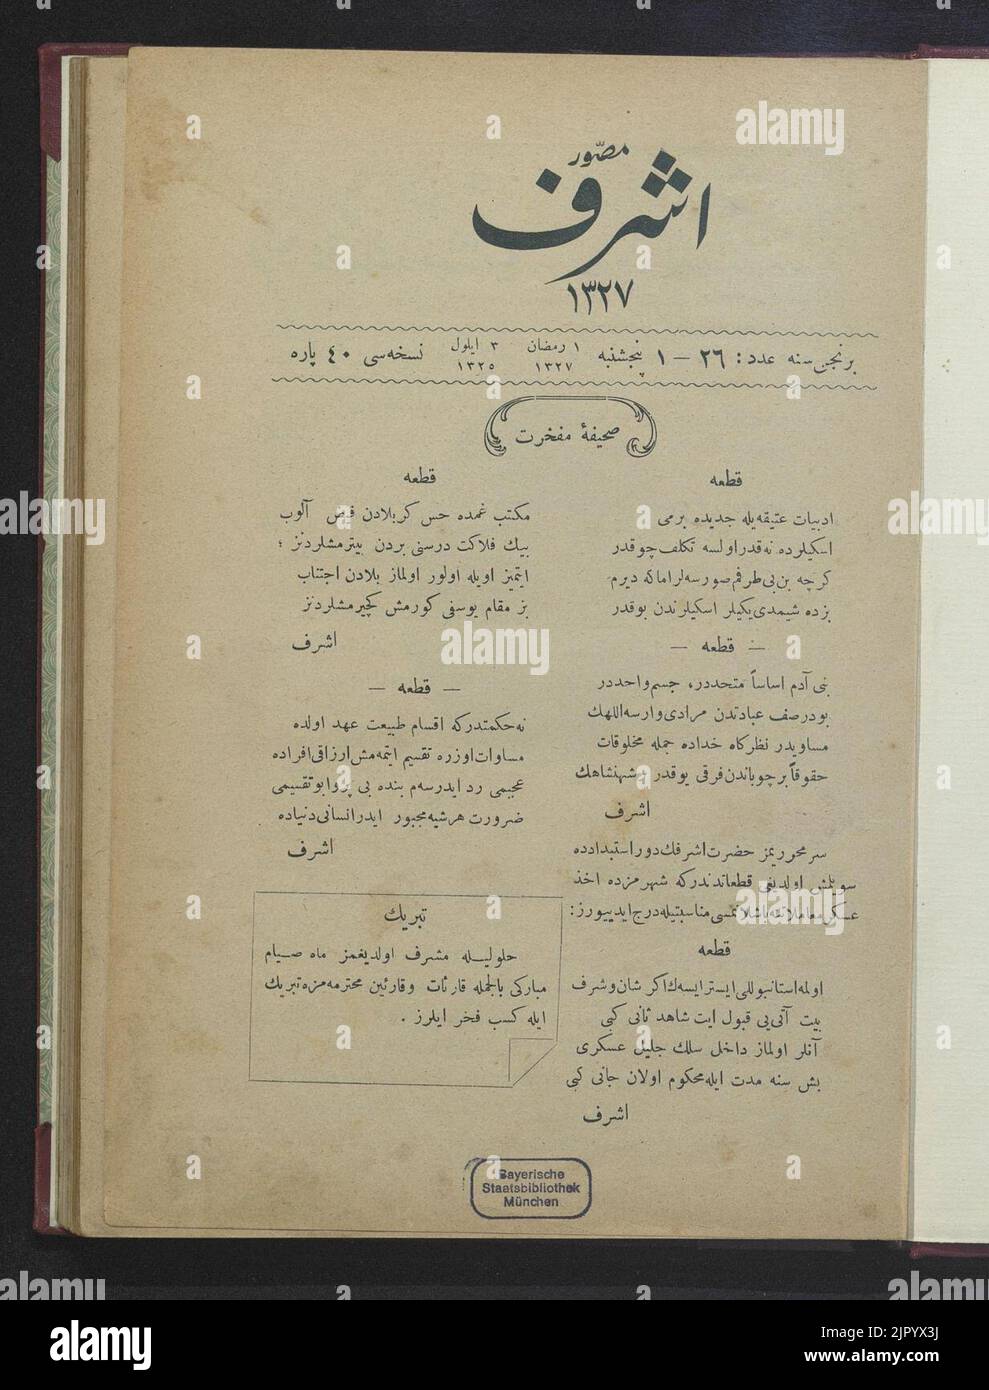 مصوّر
اشرف
١٣٢٧
برنجی سنه عدد: ٢٦ — ١ پنجشنبه ١ رمضان ١٣٢٧ ٣ ايلول ١٣٢٥ نسخه‌سی ٤٠ پاره
صحيفهٔ مفخرت
قطعه
ادبيات عتيقه‌يله جديده برمی
اسكيلرده نه‌قدر اولسه تكلف چوقدر
كرچه بن بی‌طرفم صورسه‌لر اما كه ديرم
بزده شيمدی يكيلر اسكيلرندن بوقدر
— قطعه —
بنی آدم اساساً متحددر، جسم واحددر
بودر صف عبادتدن مرادی وارسه اللهك
مساويدر نظركاه خداده جمله مخلوقات
حقوقاً بر چوباندن فرقی يوقدر شهنشاهك
اشرف
سر محرريمز حضرت اشرفك دور استبدادده
سويلمش اولديغی قطعاتدندركه شهرمزده اخذ
عسكر معاملاتنه باشلانمسی مناسبتيله درج ايدييورز:
قطعه
اولمه استانبوللی ايستر ايسه‌ك اكر شان و شرف
بيت آتی‌يی قبول ايت شاهد ثانی كبی
آنلر اولماز داخل سلك جليل عسكری
بش سنه مدت ايله محكوم اولان جانی كبی
اشرف
قطعه
مكتب غمده حس كربلادن فيض آلوب
بيك فلاكت درسنی بردن بيترمشلردنز ؛
ايتميز اويله اولور اولماز بلادن اجتناب
بز مقام يوسفی كورمش كچيرمشلردنز
اشرف
— قطعه —
نه حكمتدركه اقسام طبيعت عهد اولده
مساوات اوزره تقسيم ايتمه‌مش ارزاقی افراده
عجبمی رد ايدرسه‌م بنده بی پروا بو تقسيمی
ضرورت هر شيئه مجبور ايدر انسانی دنياده
اشرف
تبريك
حلوليله مشرف اولديغمز ماه صيام
مباركی بالجمله قارئات وقارئين محترمه‌مزه تبريك
ايله كسب فخر ايلرز .
Bayerische
Staatsbibliothek
München
alamy
Image ID: 2JPYX3J
www.alamy.com